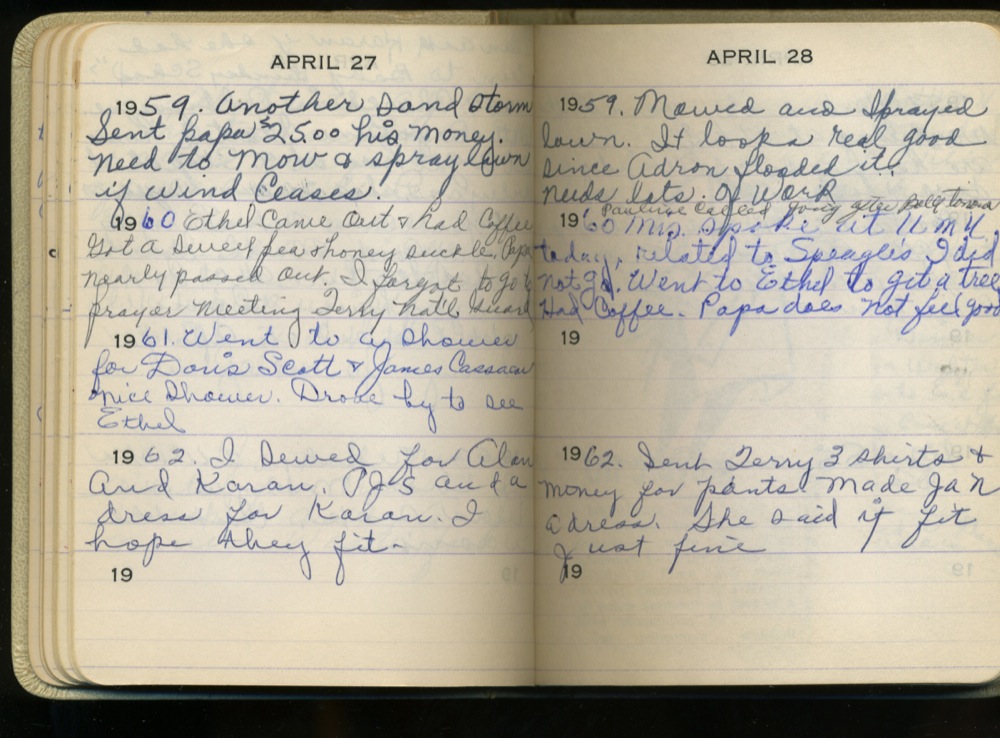 APRIL 27
1959. Another Sand storm
Sent papa $25.00 his money.
Need to Mow & spray lawn
if wind Ceases.
1960 Ethel Came Out & had Coffee
Got a Sweet pea & honey suckle. Papa
nearly passed Out. I forgot to go to
prayer Meeting Terry
1961. Went to a Shower
for Doris Scott & James
nice Shower. Drove by to see
Ethel
1962. I Sewed for Alan
And Karan. PJ's and a
dress for Karan. I
hope they fit.
19
APRIL 28
1959. Mowed and Sprayed
lawn. It looks real good
since Adron flooded it.
needs lots of work
Pauline Called going after Peggy tomorrow
1960 Mis. spoke at W M U
today, related to Speagle's I did
not go. Went to Ethel to get a tree
Had Coffee. Papa does not feel good
19
1962. Sent Terry 3 shirts &
money for pants. Made Jan
a dress. She said it fit
Just fine
19